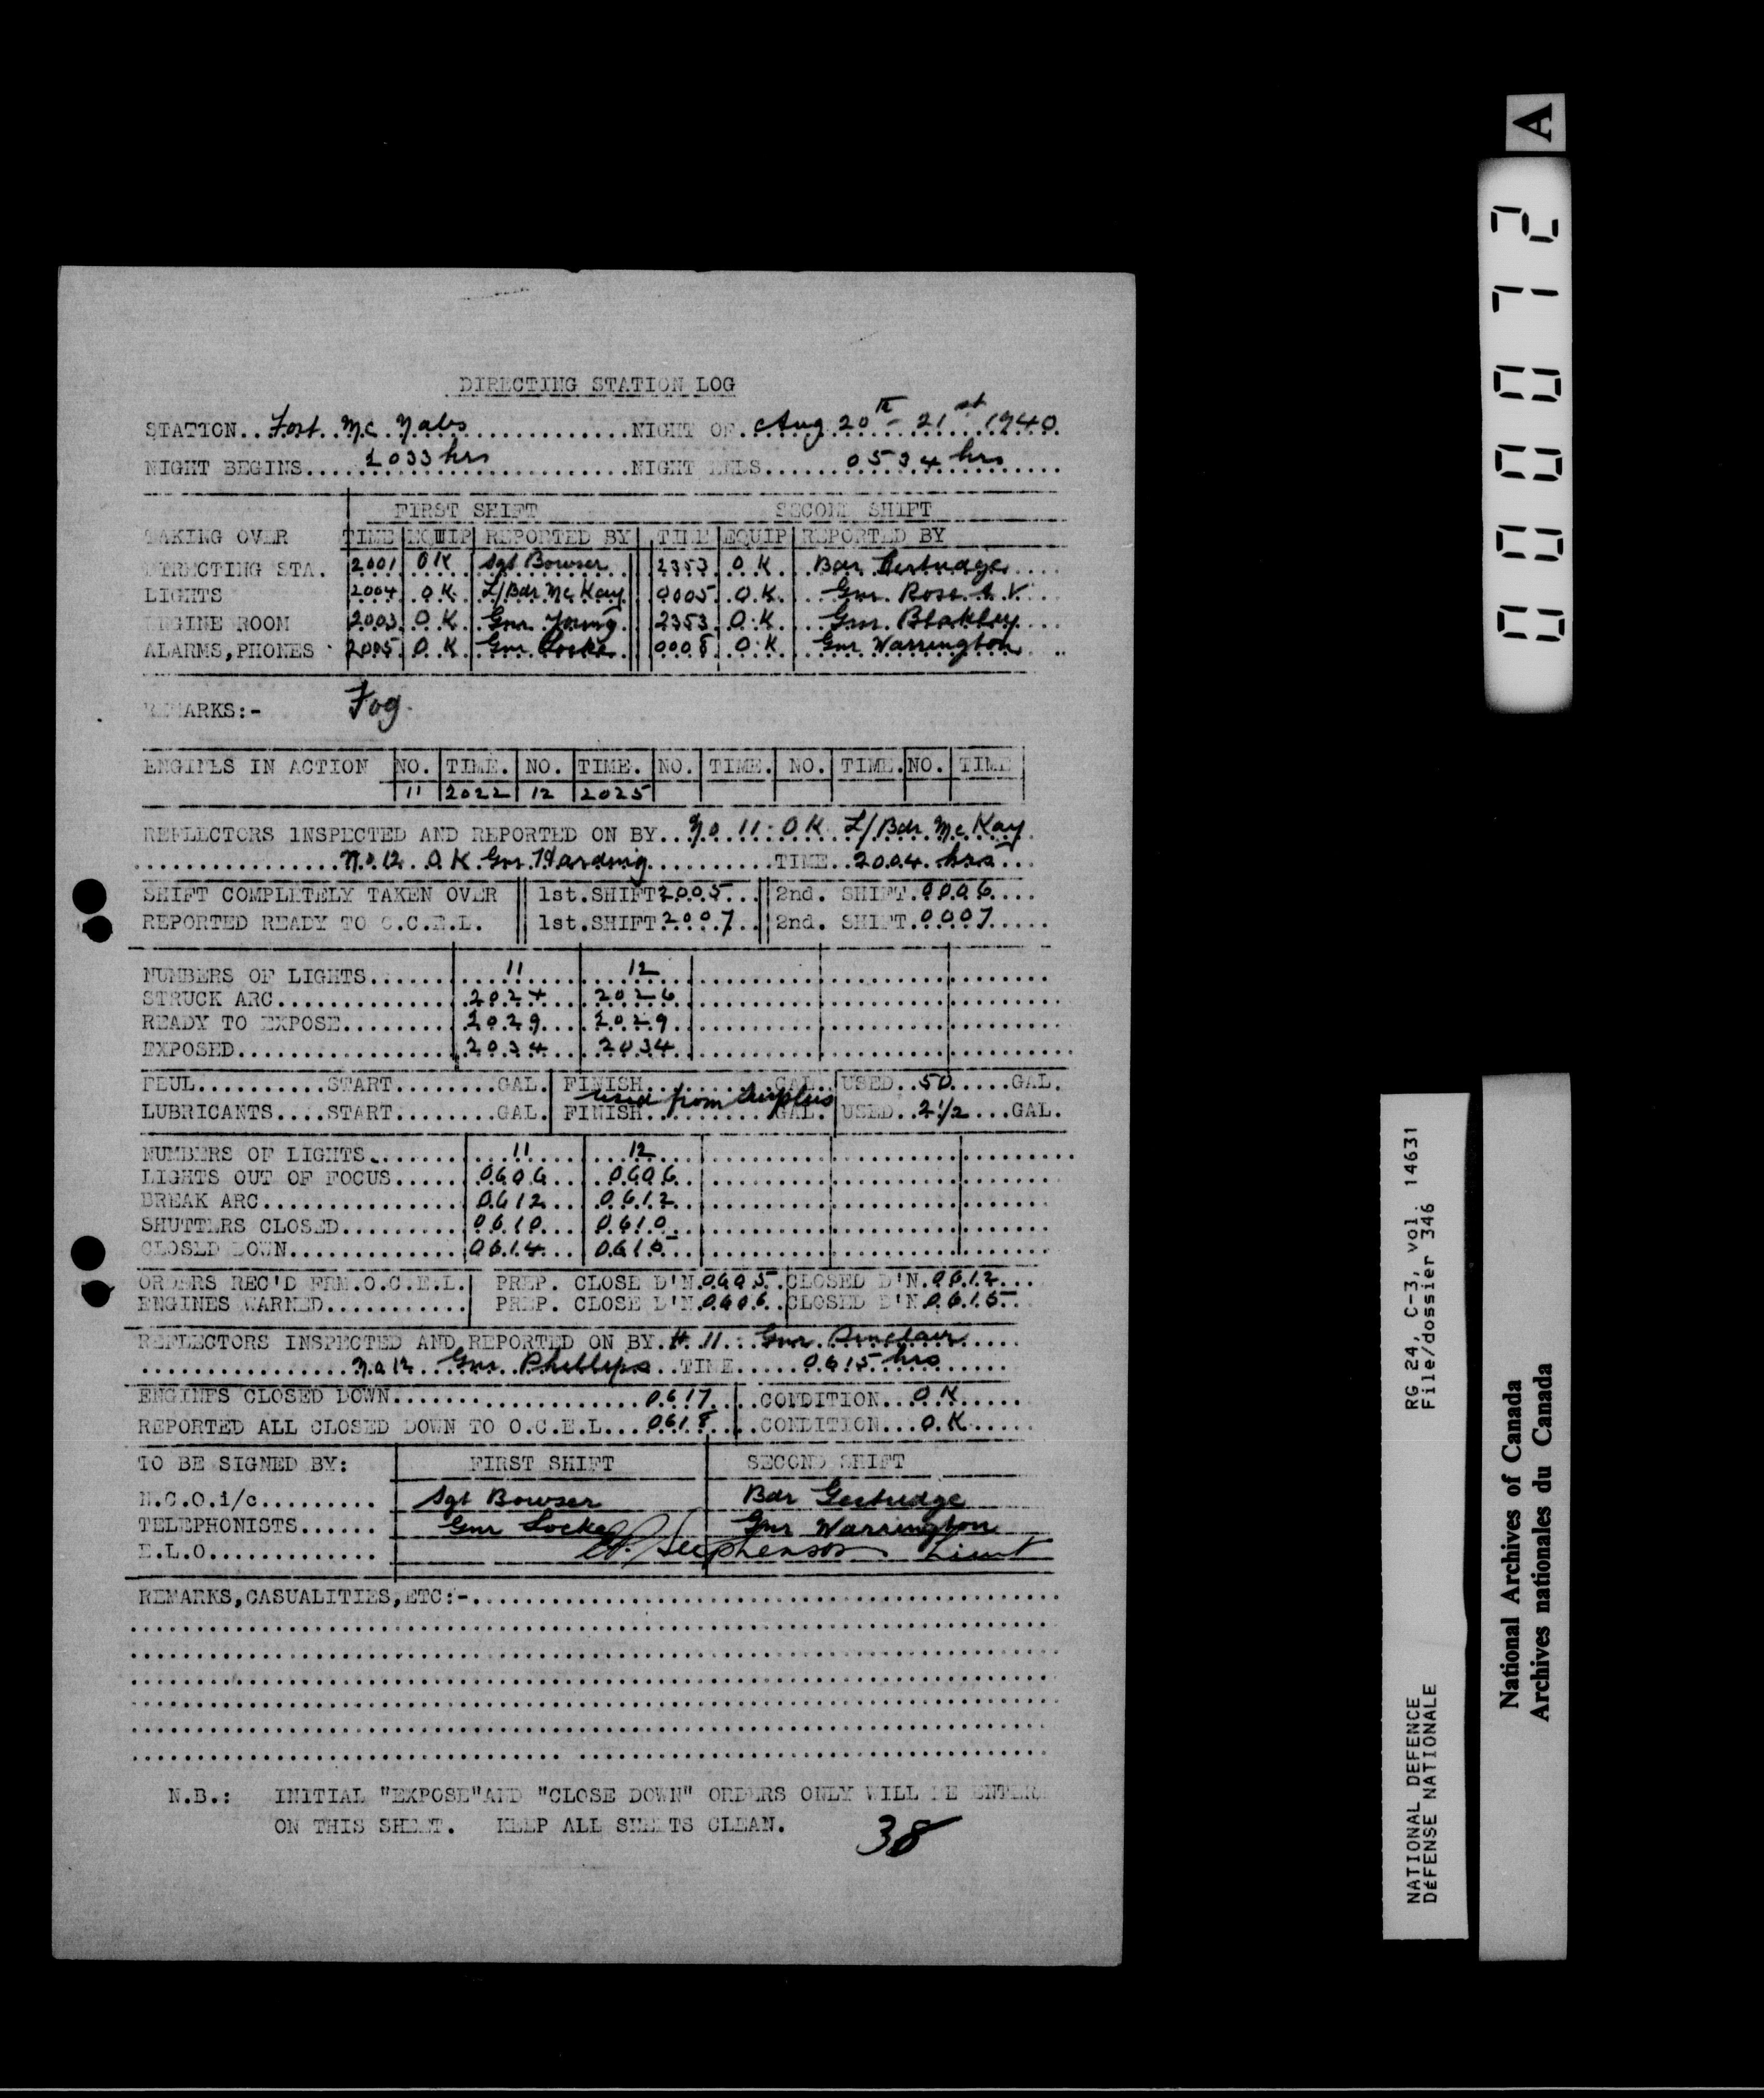 DIRECTING STATION LOG
STATION..Fort Mc Nabs............NIGHT OF. Aug 20th - 21st 1940
NIGHT BEGINS....2033 hrs............NIGHT ENDS......0534 hrs....
FIRST SHIFT SECOND SHIFT
TAKING OVER TIME EQUIP REPORTED BY TIME EQUIP REPORTED BY
DIRECTING STA. 2001 OK Sgt Bowser 2353 O.K Bdr Gertridge
LIGHTS 2004 O.K. L/Bdr McKay 0005 O.K. Gnr. Ross A.V.
ENGINE ROOM 2003 O.K. Gnr. Young 2353 O.K Gnr. Blakley
ALARMS,PHONES 2005 O.K Gnr Locke 0005 O.K Gnr Warrington
REMARKS:- Fog.
ENGINES IN ACTION NO. TIME. NO. TIME. NO. TIME. NO. TIME. NO. TIME
11 2022 12 2025
REFLECTORS INSPECTED AND REPORTED ON BY...No. 11. O K. L/Bdr. McKay.
................No.12. O.K. Gnr. Harding..........TIME..2004 hrs...
SHIFT COMPLETELY TAKEN OVER 1st.SHIFT 2005... 2nd. SHIFT.0006....
REPORTED READY TO O.C.E.L. 1st.SHIFT 2007.. 2nd. SHIFT.0007.....
NUMBERS OF LIGHTS...... 11 12
STRUCK ARC............. 2024 2026
READY TO EXPOSE........ 2029 2029
EXPOSED................ 2034 2034
FEUL..........START........GAL. FINISH..........GAL. USED..50.....GAL.
used from Surplus
LUBRICANTS....START........GAL. FINISH..........GAL. USED..2 1/2...GAL.
NUMBERS OF LIGHTS...... 11 12
LIGHTS OUT OF FOCUS..... 0606 0606
BREAK ARC............... 0612 0612
SHUTTERS CLOSED......... 0610 0610
CLOSED DOWN............. 0614 0615
ORDERS REC'D FRM.O.C.E.L. PREP. CLOSE D'N.0605.CLOSED D'N.0612...
ENGINES WARNED........... PREP. CLOSE D'N.0606..CLOSED D'N.0615...
REFLECTORS INSPECTED AND REPORTED ON BY.#.11...Gnr. Sinclair.....
................No 12 Gnr. Phillips..TIME.....0615 hrs.......
ENGINES CLOSED DOWN....................0617...CONDITION...O K.....
REPORTED ALL CLOSED DOWN TO O.C.E.L...0618...CONDITION...O.K.....
TO BE SIGNED BY: FIRST SHIFT SECOND SHIFT
N.C.O.i/c......... Sgt Bowser Bdr Gertridge
TELEPHONISTS...... Gnr Locke Gnr Warrington
E.L.O............. Stephenson Lieut
REMARKS,CASUALITIES,ETC:-
N.B.: INITIAL "EXPOSE"AND "CLOSE DOWN" ORDERS ONLY WILL BE ENTER
ON THIS SHEET. KEEP ALL SHEETS CLEAN.
38
A
0000072
RG 24, C-3, vol. 14631
File/dossier 346
NATIONAL DEFENCE
DÉFENSE NATIONALE
National Archives of Canada
Archives nationales du Canada